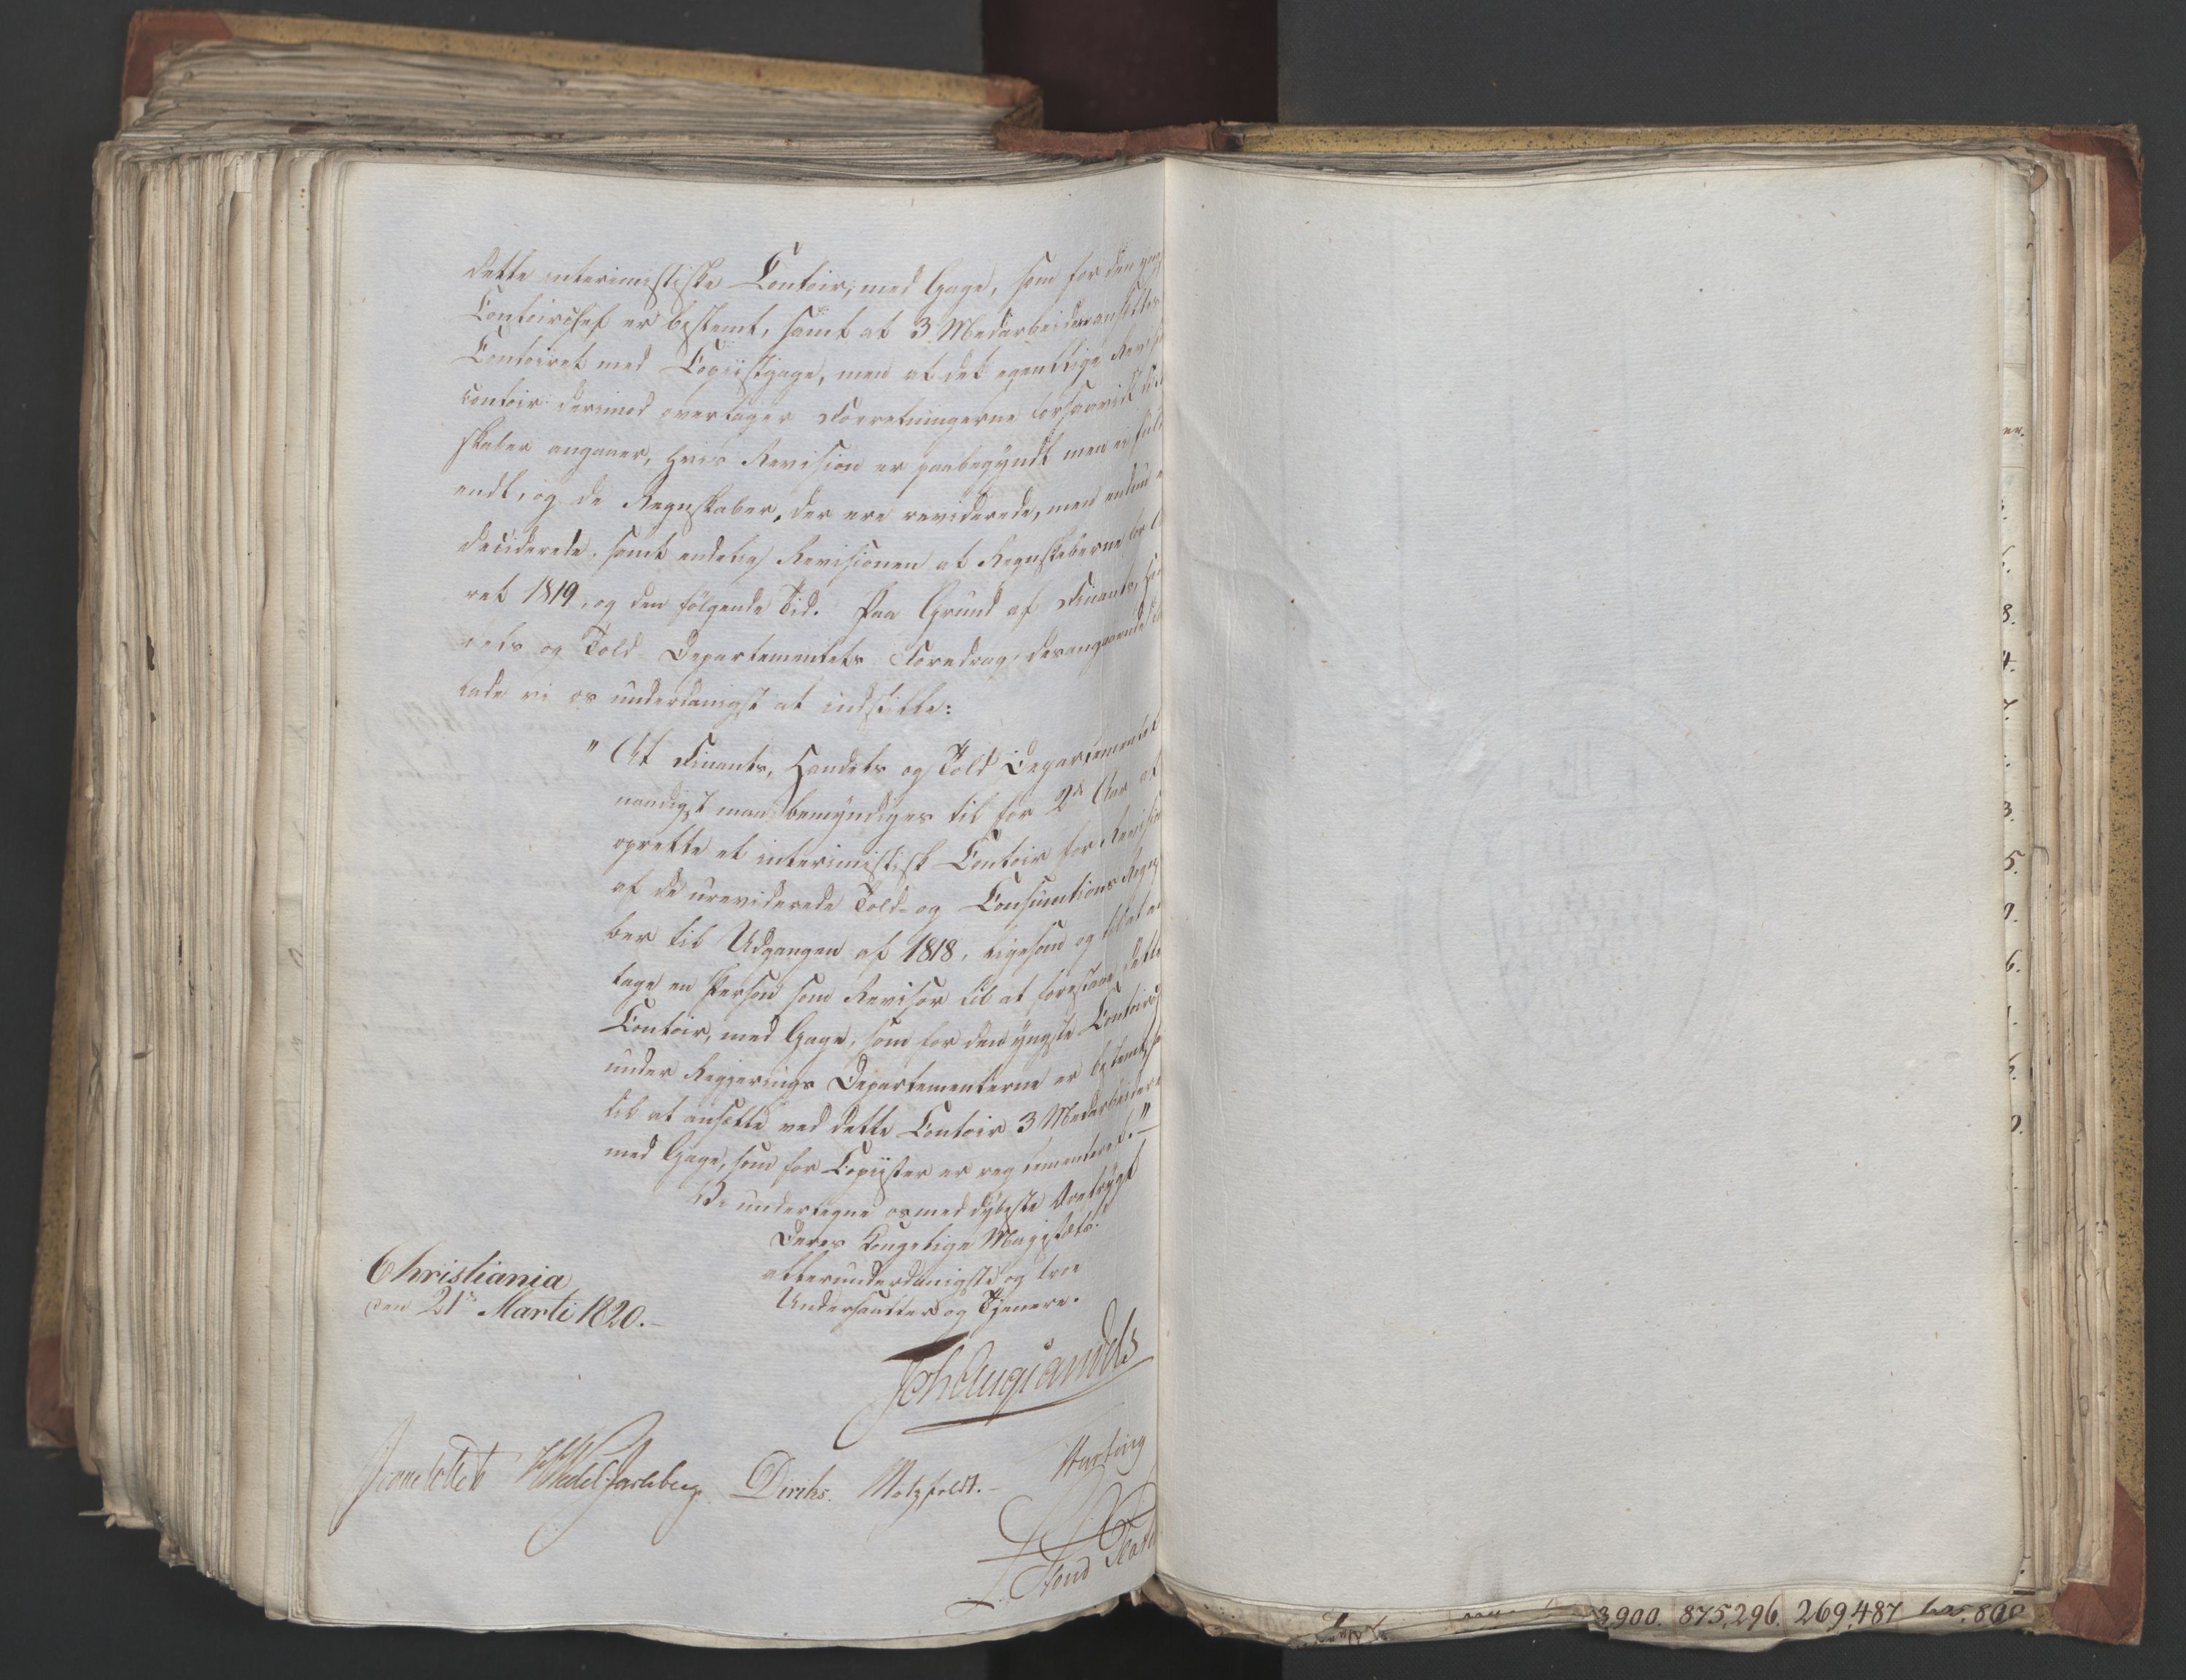 dette interimistiske Contoir, med Gage, som for den yng
Contoirchef er bestemt, samt at 3 Medarbeidere ansættes
Contoiret med Copiistgage, men at det egentlige Revis
contoir derimod overtager Forretningerne forsaavidt de
skaber angaaer, hvis Revision er paabegyndt men ei fuld
endt, og de Regnskaber, der ere reviderede, men endnu e
deciderede, samt endelig Revisionen af Regnskaberne for A
ret 1819, og den følgende Tid. Paa Grund af Finants, Ha
dels og Told Departementets Foredrag, desangaaende
lade vi os underdanigst at indstille:
"At Finants, Handels og Told Departementet
naadigst maae bemyndiges til for 2de Aar at
oprette et interimistisk Contoir for Revision
af de ureviderede Told- og Consumtions Regnsk
ber til Udgangen af 1818, ligesom og til at an
tage en Person som Revisor til at forestaae dette
Contoir, med Gage, som for den yngste Contoirch
under Regjerings Departementerne er bestemt, sa
til at ansætte ved dette Contoir 3 Medarbeidere
med Gage, som for Copiister er reglementeret."
Vi undertegne os med dybeste Ærefrygt
Deres Kongelige Majestæts
allerunderdanigste og troe
Undersaatter og Tjenere.
Christiania
den 21de Marti 1820.
Joh Aug Sandels
Jonas Collett HWedel Jarlsberg Diriks. Motzfeldt. Krefting
3,900. 875,296. 269,487